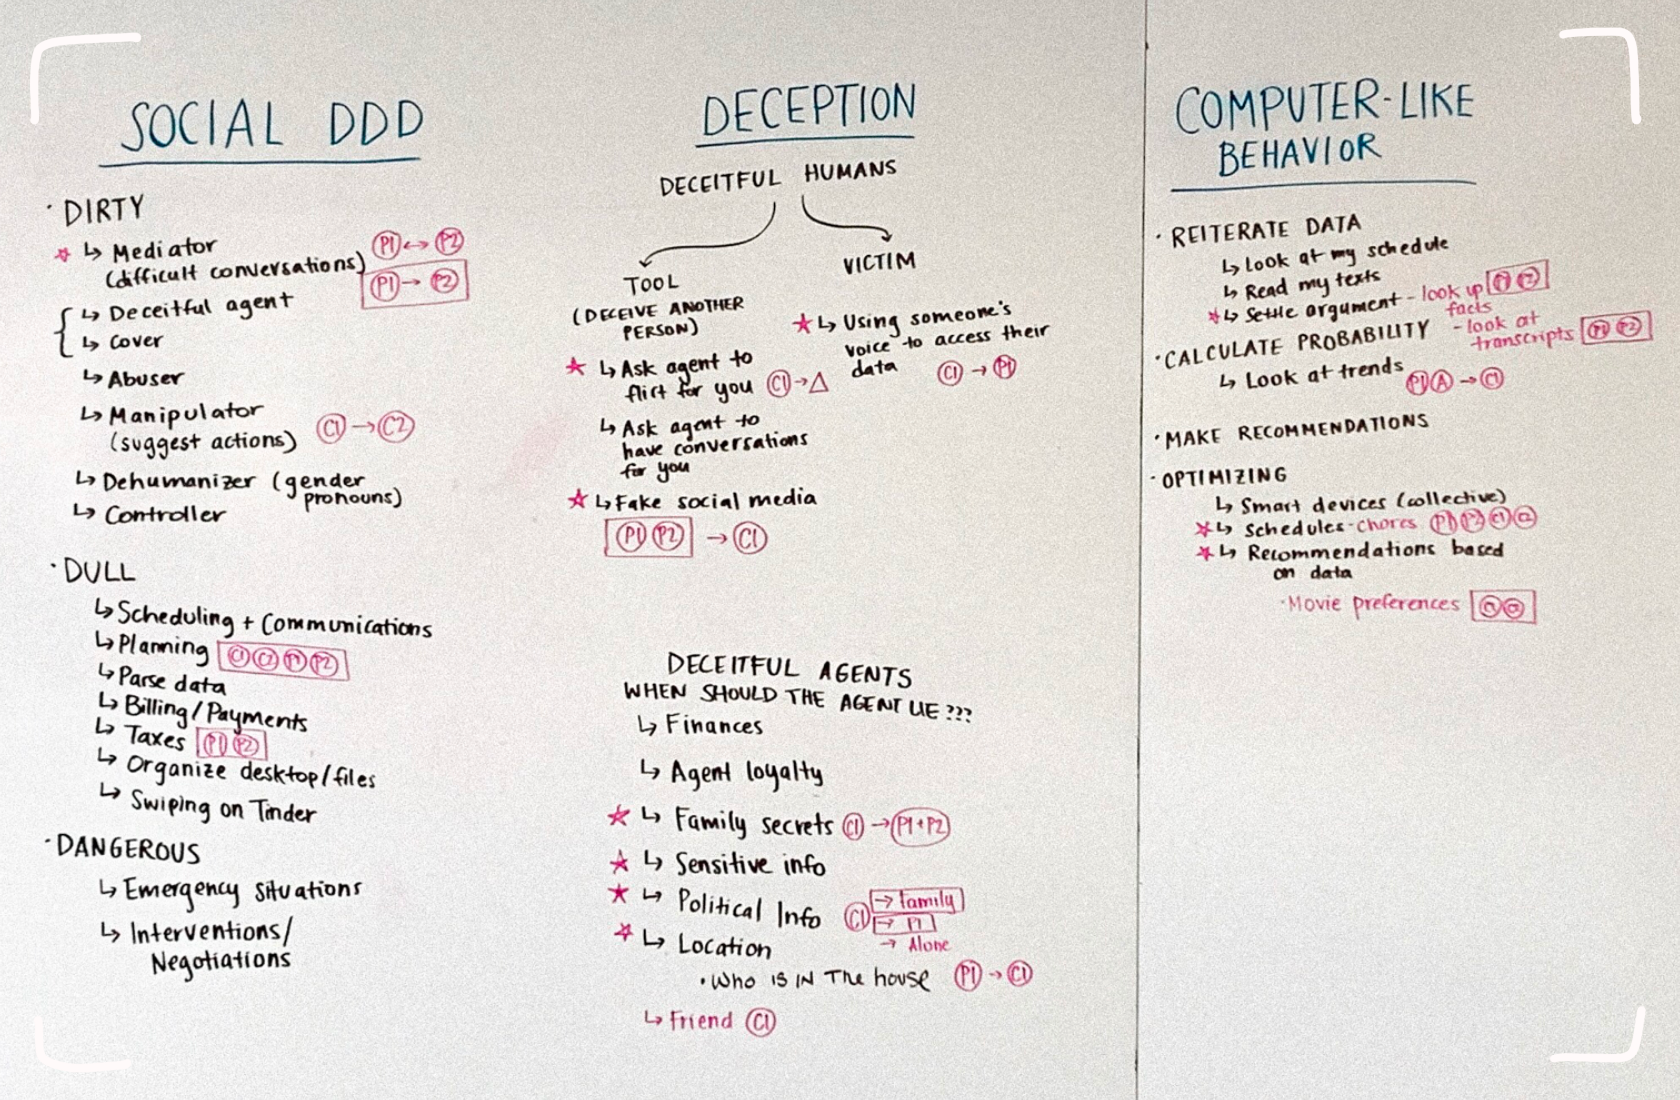 SOCIAL DDD
· DIRTY
☆ ↳ Mediator
(difficult conversations)
P1 ↔ P2
P1 → P2
{ ↳ Deceitful agent
↳ Cover
↳ Abuser
↳ Manipulator
(suggest actions)
C1 → C2
↳ Dehumanizer (gender
pronouns)
↳ Controller
· DULL
↳ Scheduling + Communications
↳ Planning C1 C2 P1 P2
↳ Parse data
↳ Billing/Payments
↳ Taxes P1 P2
↳ Organize desktop/files
↳ Swiping on Tinder
· DANGEROUS
↳ Emergency Situations
↳ Interventions/
Negotiations
DECEPTION
DECEITFUL HUMANS
TOOL
(DECEIVE ANOTHER
PERSON)
★ ↳ Ask agent to
flirt for you C1 → △
↳ Ask agent to
have conversations
for you
☆ ↳ Fake social media
P1 P2 → C1
VICTIM
★ ↳ Using someone's
voice to access their
data C1 → P1
DECEITFUL AGENTS
WHEN SHOULD THE AGENT LIE ???
↳ Finances
↳ Agent loyalty
☆ ↳ Family secrets C1 → P1+P2
☆ ↳ Sensitive info
★ ↳ Political Info C1 → Family
→ P1
→ Alone
☆ ↳ Location
· Who IS IN The house P1 → C1
↳ Friend C1
COMPUTER-LIKE
BEHAVIOR
· REITERATE DATA
↳ Look at my schedule
↳ Read my texts
☆ ↳ Settle argument - look up P1 P2
facts
- look at
transcripts P1 P2
· CALCULATE PROBABILITY
↳ Look at trends
P1 A → C1
· MAKE RECOMMENDATIONS
· OPTIMIZING
↳ Smart devices (collective)
☆ ↳ Schedules - chores P1 P2 C1 C2
☆ ↳ Recommendations based
on data
· Movie preferences